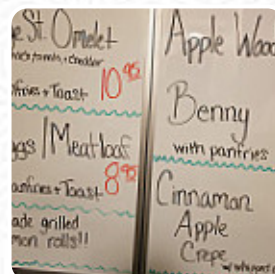 e St. Omelet
tomato, cheddar
+ Toast 10.95
gs / Meatloaf
anfries + Toast 8.95
ade grilled
mon rolls!!
Apple Wood
Benny
with panfries
Cinnamon
Apple
Crepe
w/ whipped